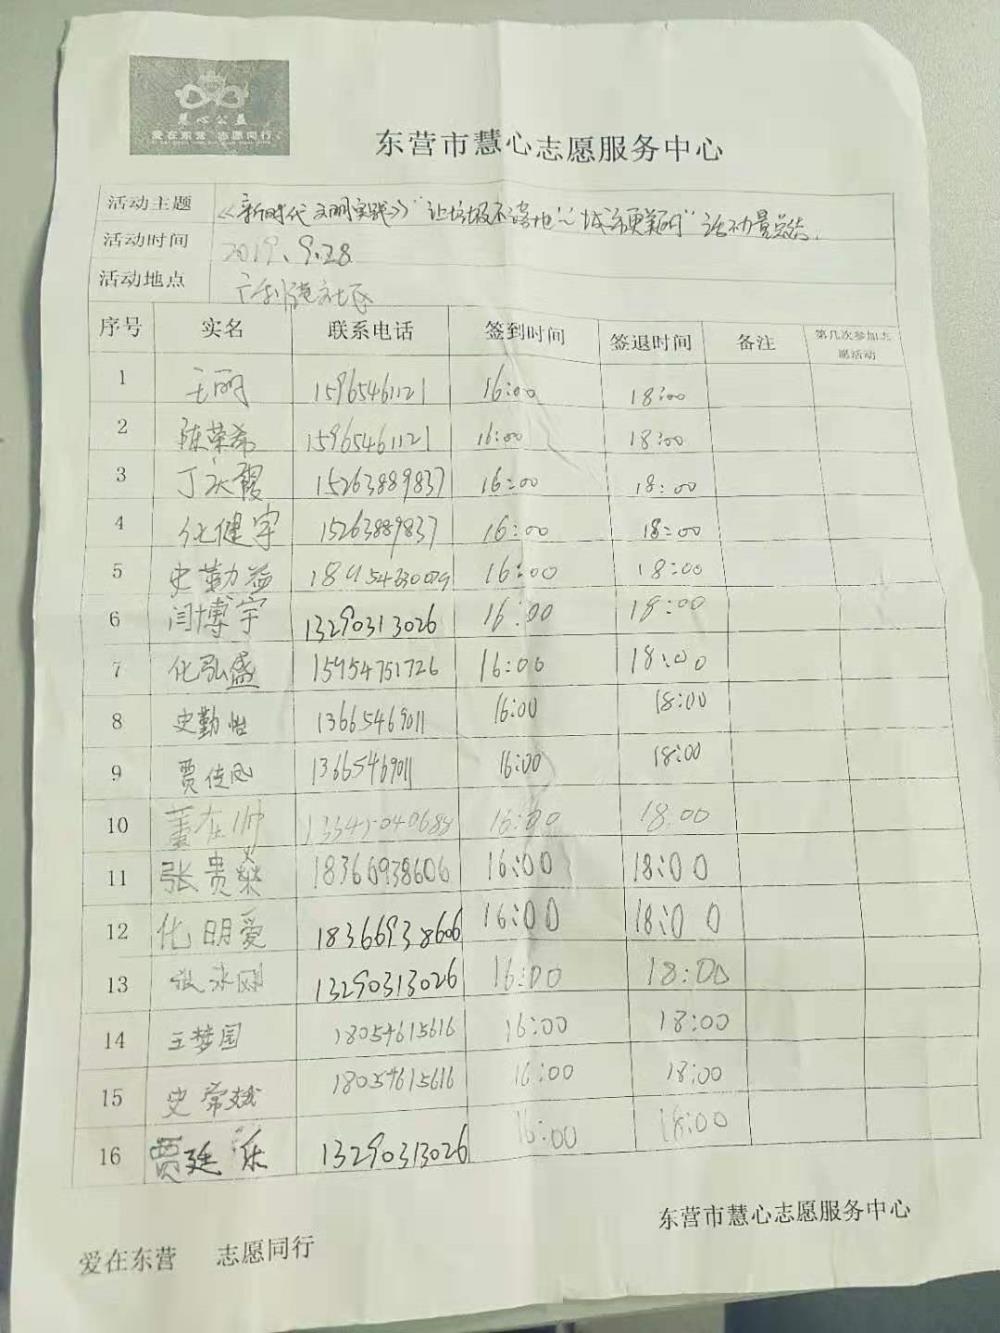 慧心公益
爱在东营 志愿同行
东营市慧心志愿服务中心
活动主题 《新时代文明实践》"让垃圾不落地~城市更美丽"活动
活动时间 2019.9.28
活动地点 社区
序号 实名 联系电话 签到时间 签退时间 备注 第几次参加志愿活动
1 王丽 15965461121 16:00 18:00
2 陈荣希 15965461121 16:00 18:00
3 丁庆霞 15263889837 16:00 18:00
4 化健宇 15263889837 16:00 18:00
5 史勤益 16:00 18:00
6 闫博宇 13290313026 16:00 18:00
7 化弘盛 15954751726 16:00 18:00
8 史勤怡 13665469011 16:00 18:00
9 贾佳凤 13665469011 16:00 18:00
10 董在帅 16:00 18:00
11 张贵荣 18366938606 16:00 18:00
12 化明爱 18366938606 16:00 18:00
13 张冰 13290313026 16:00 18:00
14 王梦国 18054615616 16:00 18:00
15 史常斌 18054615616 16:00 18:00
16 贾廷乐 13290313026 16:00 18:00
东营市慧心志愿服务中心
爱在东营 志愿同行